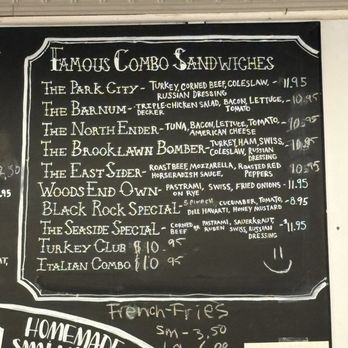 FAMOUS COMBO SANDWICHES
THE PARK CITY - TURKEY, CORNED BEEF, COLESLAW, RUSSIAN DRESSING - 11.95
THE BARNUM - TRIPLE-DECKER CHICKEN SALAD, BACON, LETTUCE, TOMATO - 10.95
THE NORTH ENDER - TUNA, BACON, LETTUCE, TOMATO, AMERICAN CHEESE - 10.95
THE BROOKLAWN BOMBER - TURKEY, HAM, SWISS, COLESLAW, RUSSIAN DRESSING - 10.95
THE EAST SIDER - ROAST BEEF, MOZZARELLA, ROASTED RED PEPPERS HORSERADISH SAUCE, 10.95
WOODS END OWN - PASTRAMI, SWISS, FRIED ONIONS - 11.95
ON RYE
BLACK ROCK SPECIAL - SPINACH, CUCUMBER, TOMATO, DILL HAVARTI, HONEY MUSTARD - 8.95
THE SEASIDE SPECIAL - CORNED BEEF OR PASTRAMI, SAUERKRAUT, RUBEN SWISS, RUSSIAN DRESSING - $11.95
TURKEY CLUB $10.95
ITALIAN COMBO $10.95
French-Fries
sm - 3.50
HOMEMADE